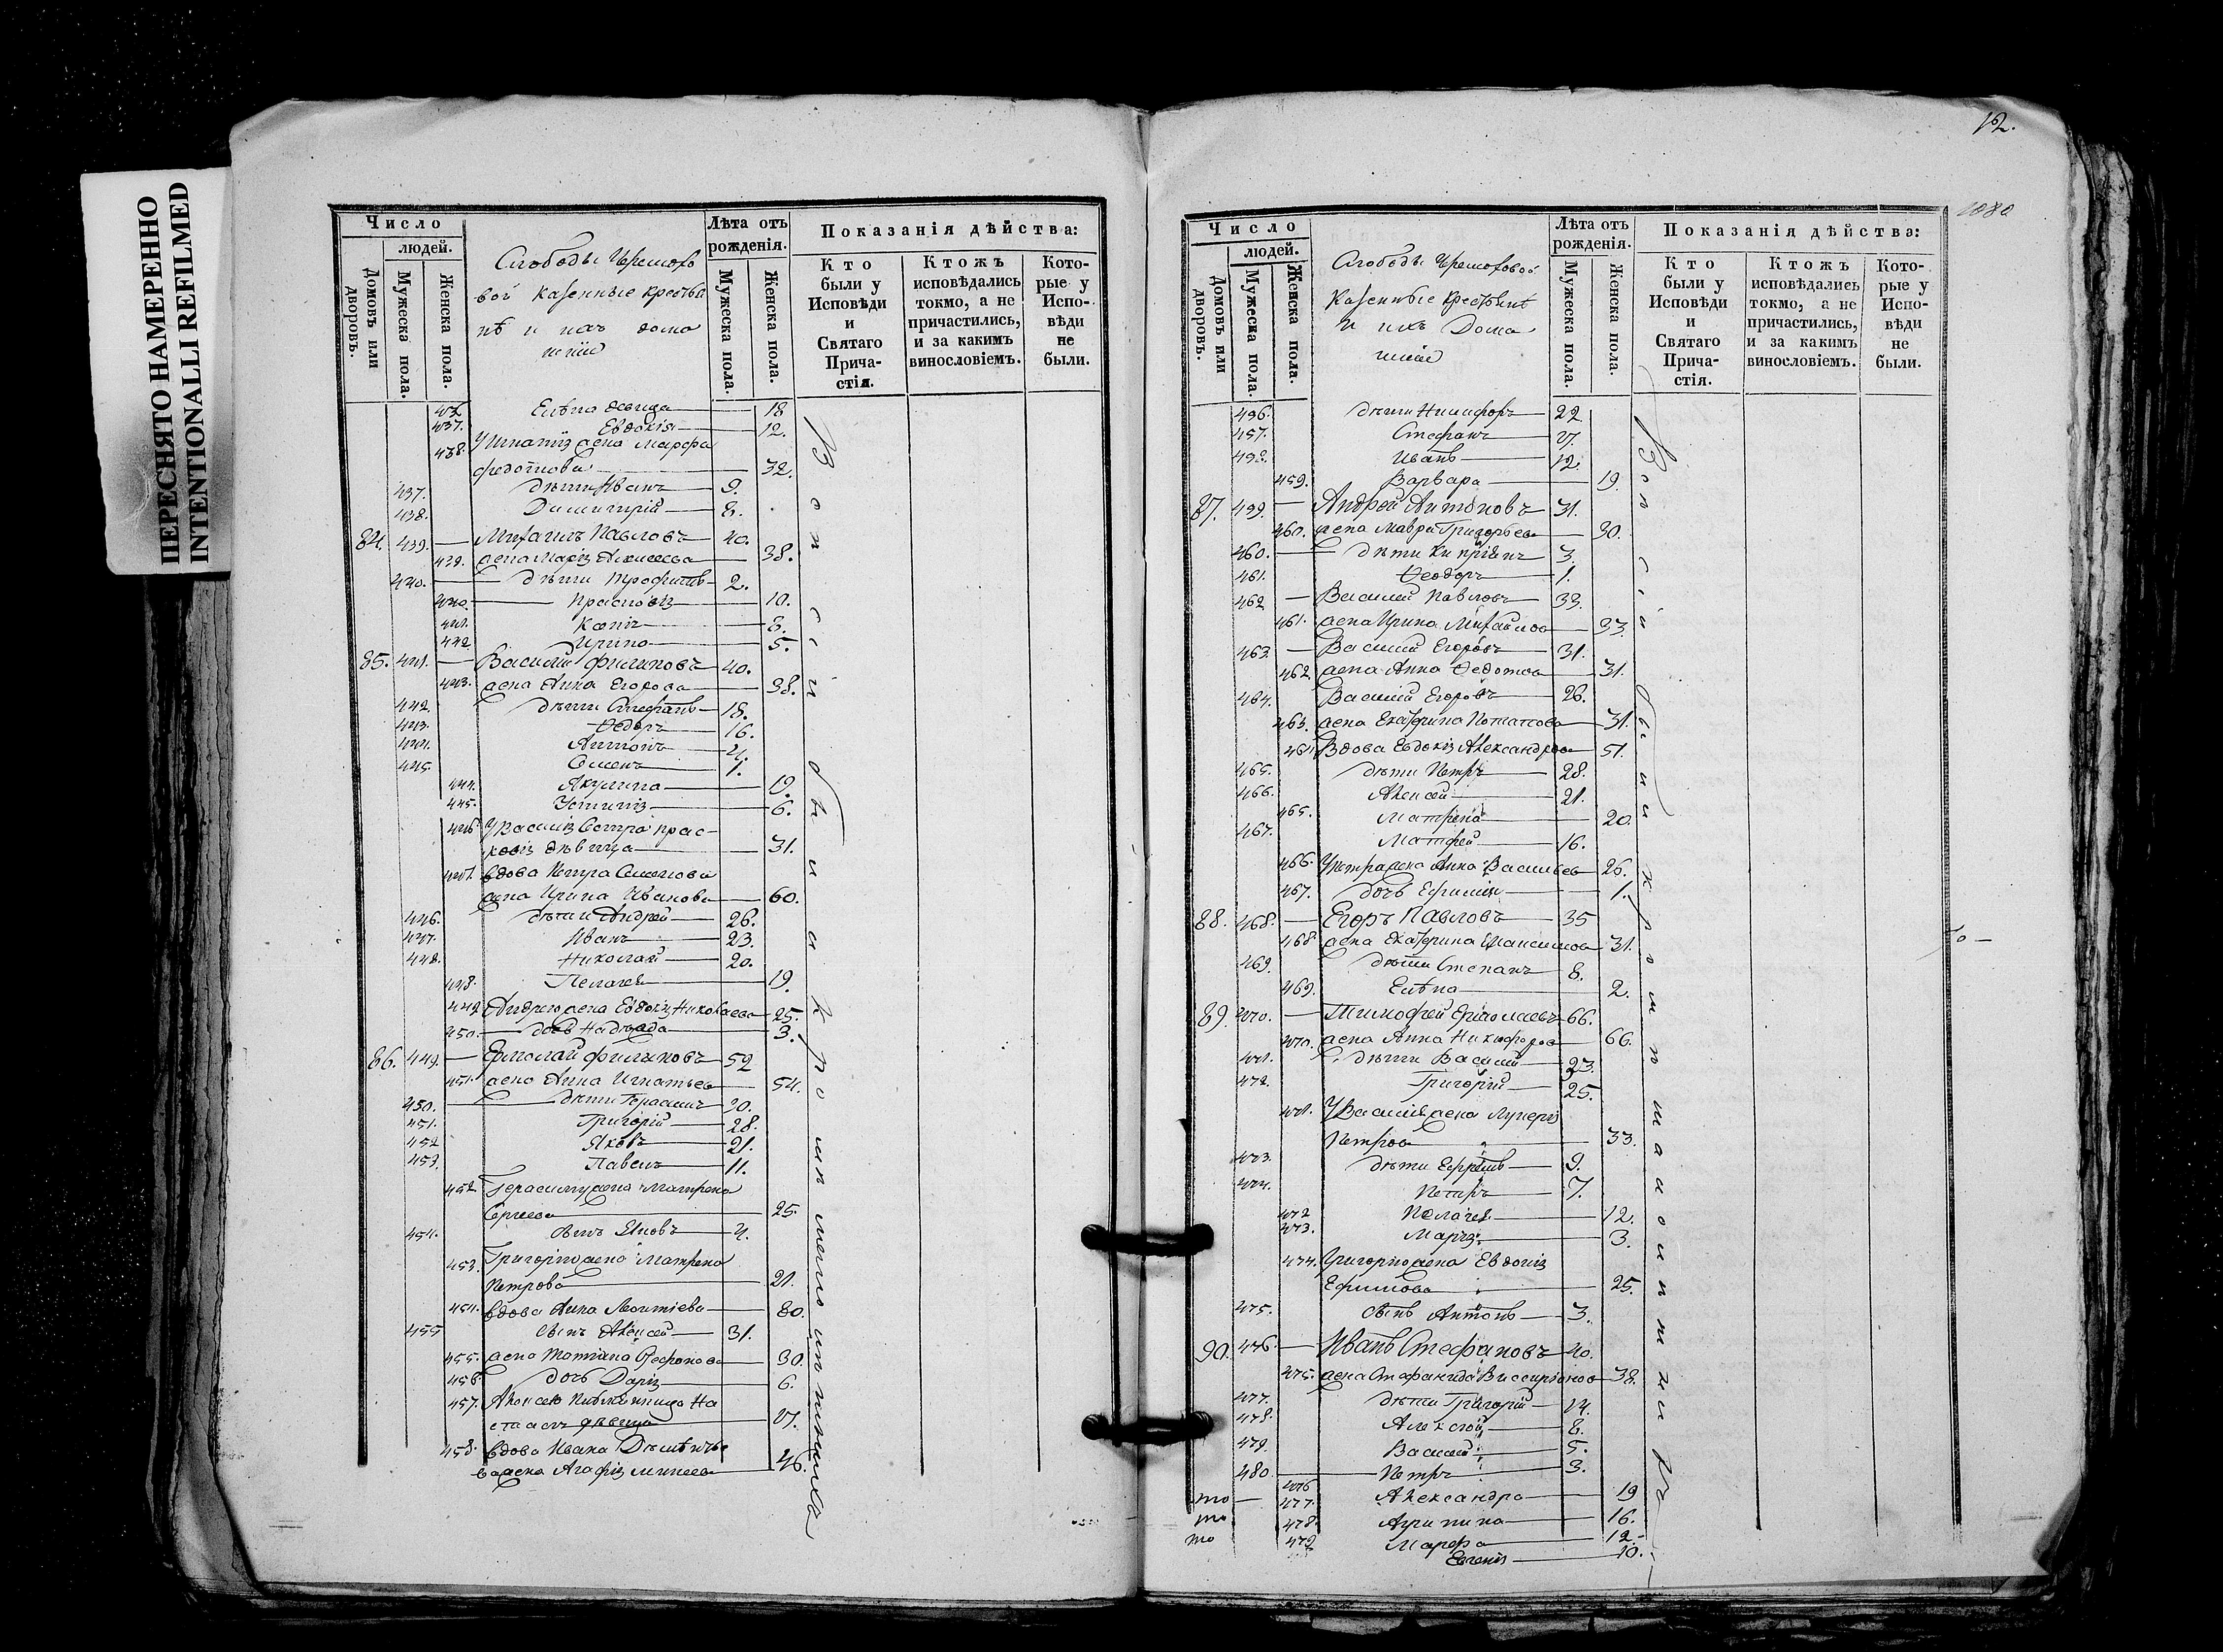 ПЕРЕСНЯТО НАМЕРЕННО
INTENTIONALLI REFILMED
Число
людей.
Домовъ или дворовъ.
Мужеска пола.
Женска пола.
Слободы Черемохо
вой казенные крестья
нѣ и ихъ дома
шніи
Лѣта отъ рожденія.
Мужеска пола.
Женска пола.
Показанія дѣйства:
Кто были у Исповѣди и Святаго Прича-стія.
Ктожъ исповѣдались токмо, а не причастились, и за какимъ винословіемъ.
Кото-рые у Испо-вѣди не были.
Елена девица 18
437. Евдокія 12.
438. Игнатія жена Марфа
Федотова 32.
437. дѣти Иванъ 9.
438. Димитрій 8.
84. 439. Михаилъ Павловъ 40.
439. жена Марія Алексеева 38.
440. дѣти Трофимъ 2.
440. Прасковія 10.
441. Ксенія 8.
442 Ирина 5.
85. 441. Василій Филиповъ 40.
443. жена Анна Егорова 38.
442. дѣти Стефанъ 18.
443. Ѳедоръ 16.
444. Антонъ 4.
445. Семенъ 1.
444. Акулина 19.
445. Устинія 6.
446. У Василія Сестра Прас-
ковія дѣвица 31.
447. вдова Петра Семенова
жена Ирина Иванова 60.
446. дѣти Андрей 26.
447. Иванъ 23.
448. Николай 20.
448. Пелагея 19.
449 Андрея жена Евдокія Николаева 25.
450. дочь Надежда 3.
86. 449. Ермолай Филиповъ 52
451. жена Анна Игнатьева 54.
450. дѣти Герасимъ 30.
451. Григорій 28.
452 Яковъ 21.
453. Павелъ 11.
452. Герасиму жена Матрена
Сергеева 25.
454. сынъ Яковъ 4.
453. Григорію жена Матрена
Петрова 21.
454. вдова Анна Леонтіева 80.
455 сынъ Алексей 31.
455. жена Татіана 30.
456. дочь Дарія 6.
457. Алексею На
стасія дѣвица 17.
458. вдова Ивана
жена Агафія 46.
Вси сій были а кромѣ
12.
1080
Число
людей.
Домовъ или дворовъ.
Мужеска пола.
Женска пола.
Слободы Черемоховой
Казенные крестьянѣ
и ихъ Дома
шніе
Лѣта отъ рожденія.
Мужеска пола.
Женска пола.
Показанія дѣйства:
Кто были у Исповѣди и Святаго Прича-стія.
Ктожъ исповѣдались токмо, а не причастились, и за какимъ винословіемъ.
Кото-рые у Испо-вѣди не были.
456. дѣти Никифоръ 22
457. Стефанъ 17.
458. Иванъ 12.
459. Варвара 19.
87. 459. Андрей Антоновъ 31.
460. жена Мавра Григорьева 30.
460. дѣти Кипріянъ 3.
461. Ѳеодоръ 1.
462 Василей Павловъ 33.
461. жена Ирина Михайлова 33.
463. Василий Егоровъ 31.
462 жена Анна Ѳедотова 31.
464. Василій Егоровъ 26.
463. жена Екатерина Потапова 31.
464 Вдова Евдокія Александрова 51.
465. дѣти Петръ 28.
466. Алексей 21.
465. Матрена 20.
467. Матфей 16.
466. Петра жена Анна Васильева 26.
467. дочь Ефимія 1.
88. 468. Егоръ Павловъ 35
468. жена Екатерина Максимова 31.
469. дѣти Степанъ 8.
469. Елена 2.
89. 470. Тимофей Ермолаевъ 66.
470. жена Анна Никифорова 66.
471. дѣти Василій 23.
472. Григорій 25.
471. У Василія жена Лукерія
Петрова 33.
473. дѣти Ефремъ 9.
474. Петръ 7.
472 Пелагея 12.
473. Марія 3.
474. Григорію жена Евдокія
Ефимова 25.
475. сынъ Антонъ 3.
90. 476. Иванъ Стефановъ 40.
475. жена Стефанида Виссаріонова 38.
477. дѣти Григорій 14.
478. Алексѣй 8.
479. Василей 5.
480. Петръ 3.
476 Александра 19
477. Агрипина 16.
478. Марфа 12.
479 Евгенія 10.
то
то
то
Вси сій были кромѣ